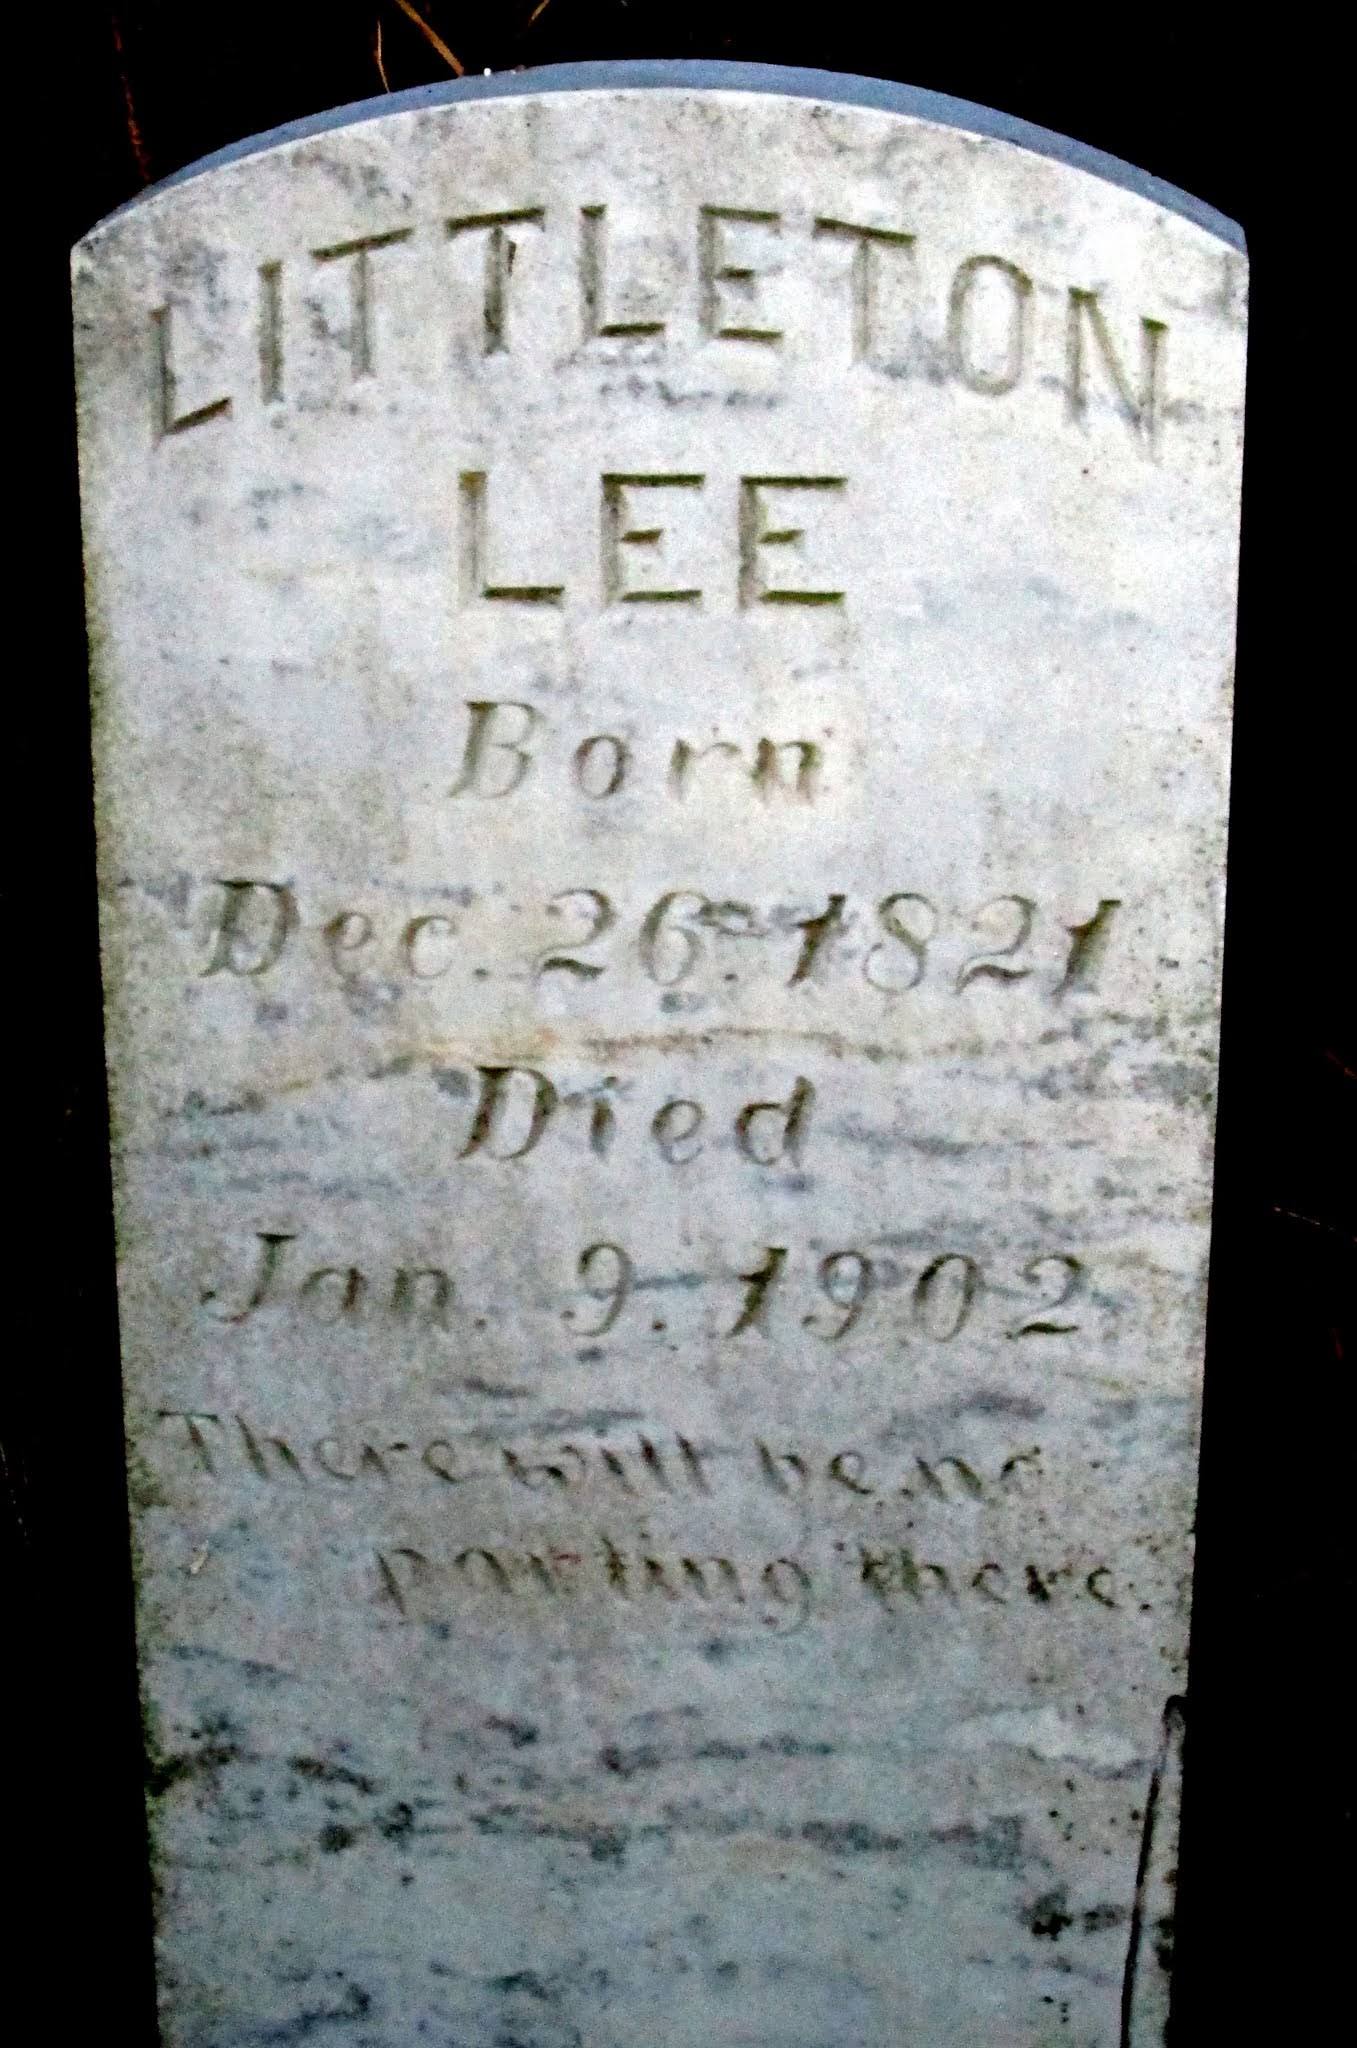 LITTLETON
LEE
Born
Dec. 26th. 1821
Died
Jan. 9. 1902
There will be no
parting there.